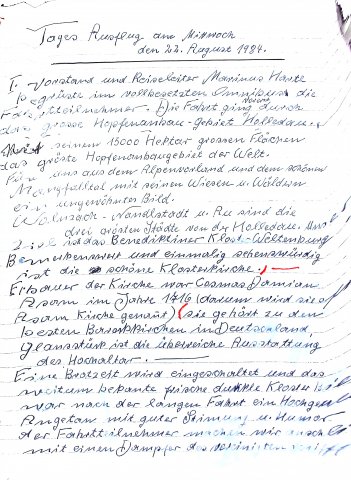 Tages Ausflug am Mittwoch
den 22. August 1984.
I. Vorstand und Reiseleiter Marinus
begrüste im vollbesetzten Omnibus die
Fahrtteilnehmer. Die Fahrt ging durch
das grosse Hopfenanbau-Gebiet Holledau.
seinen 15000 Hektar grossen Flächen
das gröste Hopfenanbaugebiet der Welt.
Für uns aus dem Alpenvorland und dem schönen
Mangfalltal mit seinen Wiesen u. Wäldern
ein ungewöhntes Bild.
Wolnzach - Nandlstadt u. Au sind die
drei grösten Städte von der Holledau. Uns
Ziel ist das Benediktiner Klost-Weltenburg
Bemerkenswert und einmalig sehenswürdig
ist die schöne Klosterkirche.
Erbauer der Kirche war Cosmas Damian
Asam im Jahre 1716 (darum wird sie
Asam Kirche genant) sie gehört zu den
besten Barockkirchen in Deutschland,
Glansstück ist die überreiche Ausstattung
des Hochaltar.
Eine Brotzeit wird eingeschaltet und das
weitum bekante frische dunkle Kloster
war nach der langen Fahrt ein Hochgen
Angetan mit guter Stimung u. Humor
der Fahrtteilnehmer machen wir
mit einen Dampfer